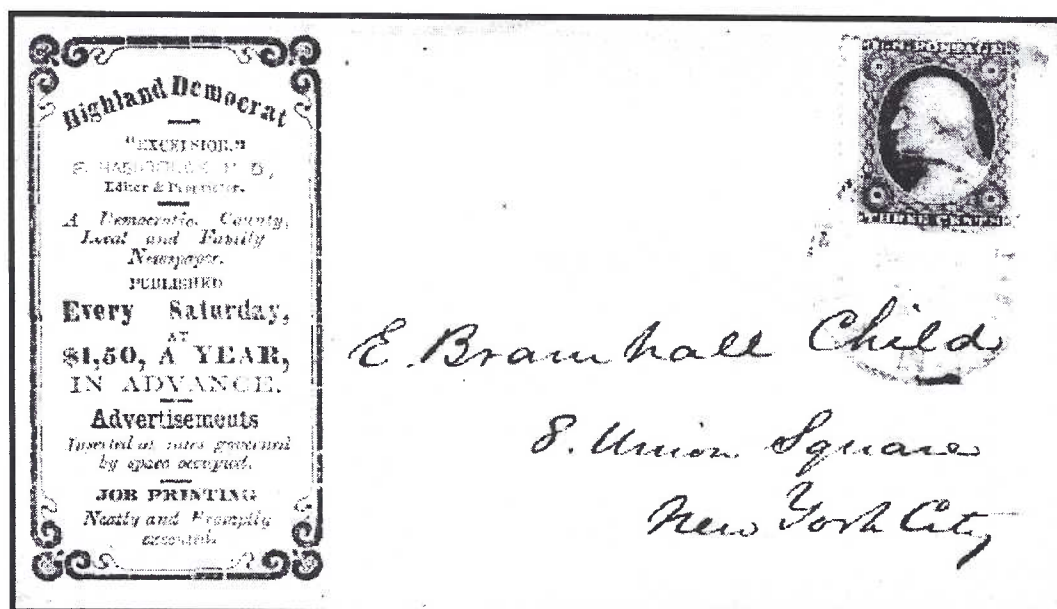 Highland Democrat
"EXCELSIOR."
M. D.,
Editor & Proprietor.
A Democratic, County,
Local and Family
Newspaper.
PUBLISHED
Every Saturday,
AT
$1,50, A YEAR,
IN ADVANCE.
Advertisements
Inserted at rates governed
by space occupied.
JOB PRINTING
Neatly and Promptly
executed.
THREE CENTS
E. Bramhall Childs
8. Union Square
New York City